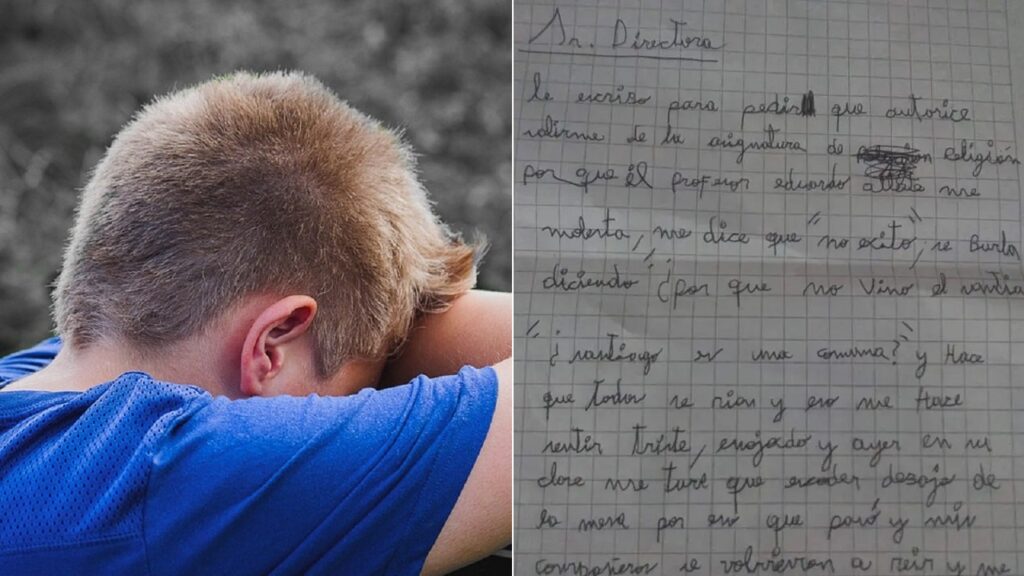 Sr. Directora
le escribo para pedir que autorice
salirme de la asignatura de religión
por que él profesor eduardo me
molesta, me dice que "no exito", se Burla
diciendo "¿por que no vino el santia
"¿santiago es una comuna?" y Hace
que todos se rian y eso me Hace
sentir triste, enojado y ayer en su
clase me tuve que esconder desajo de
la mesa por eso que pasó y mis
compañeros se volvieron a reir y me